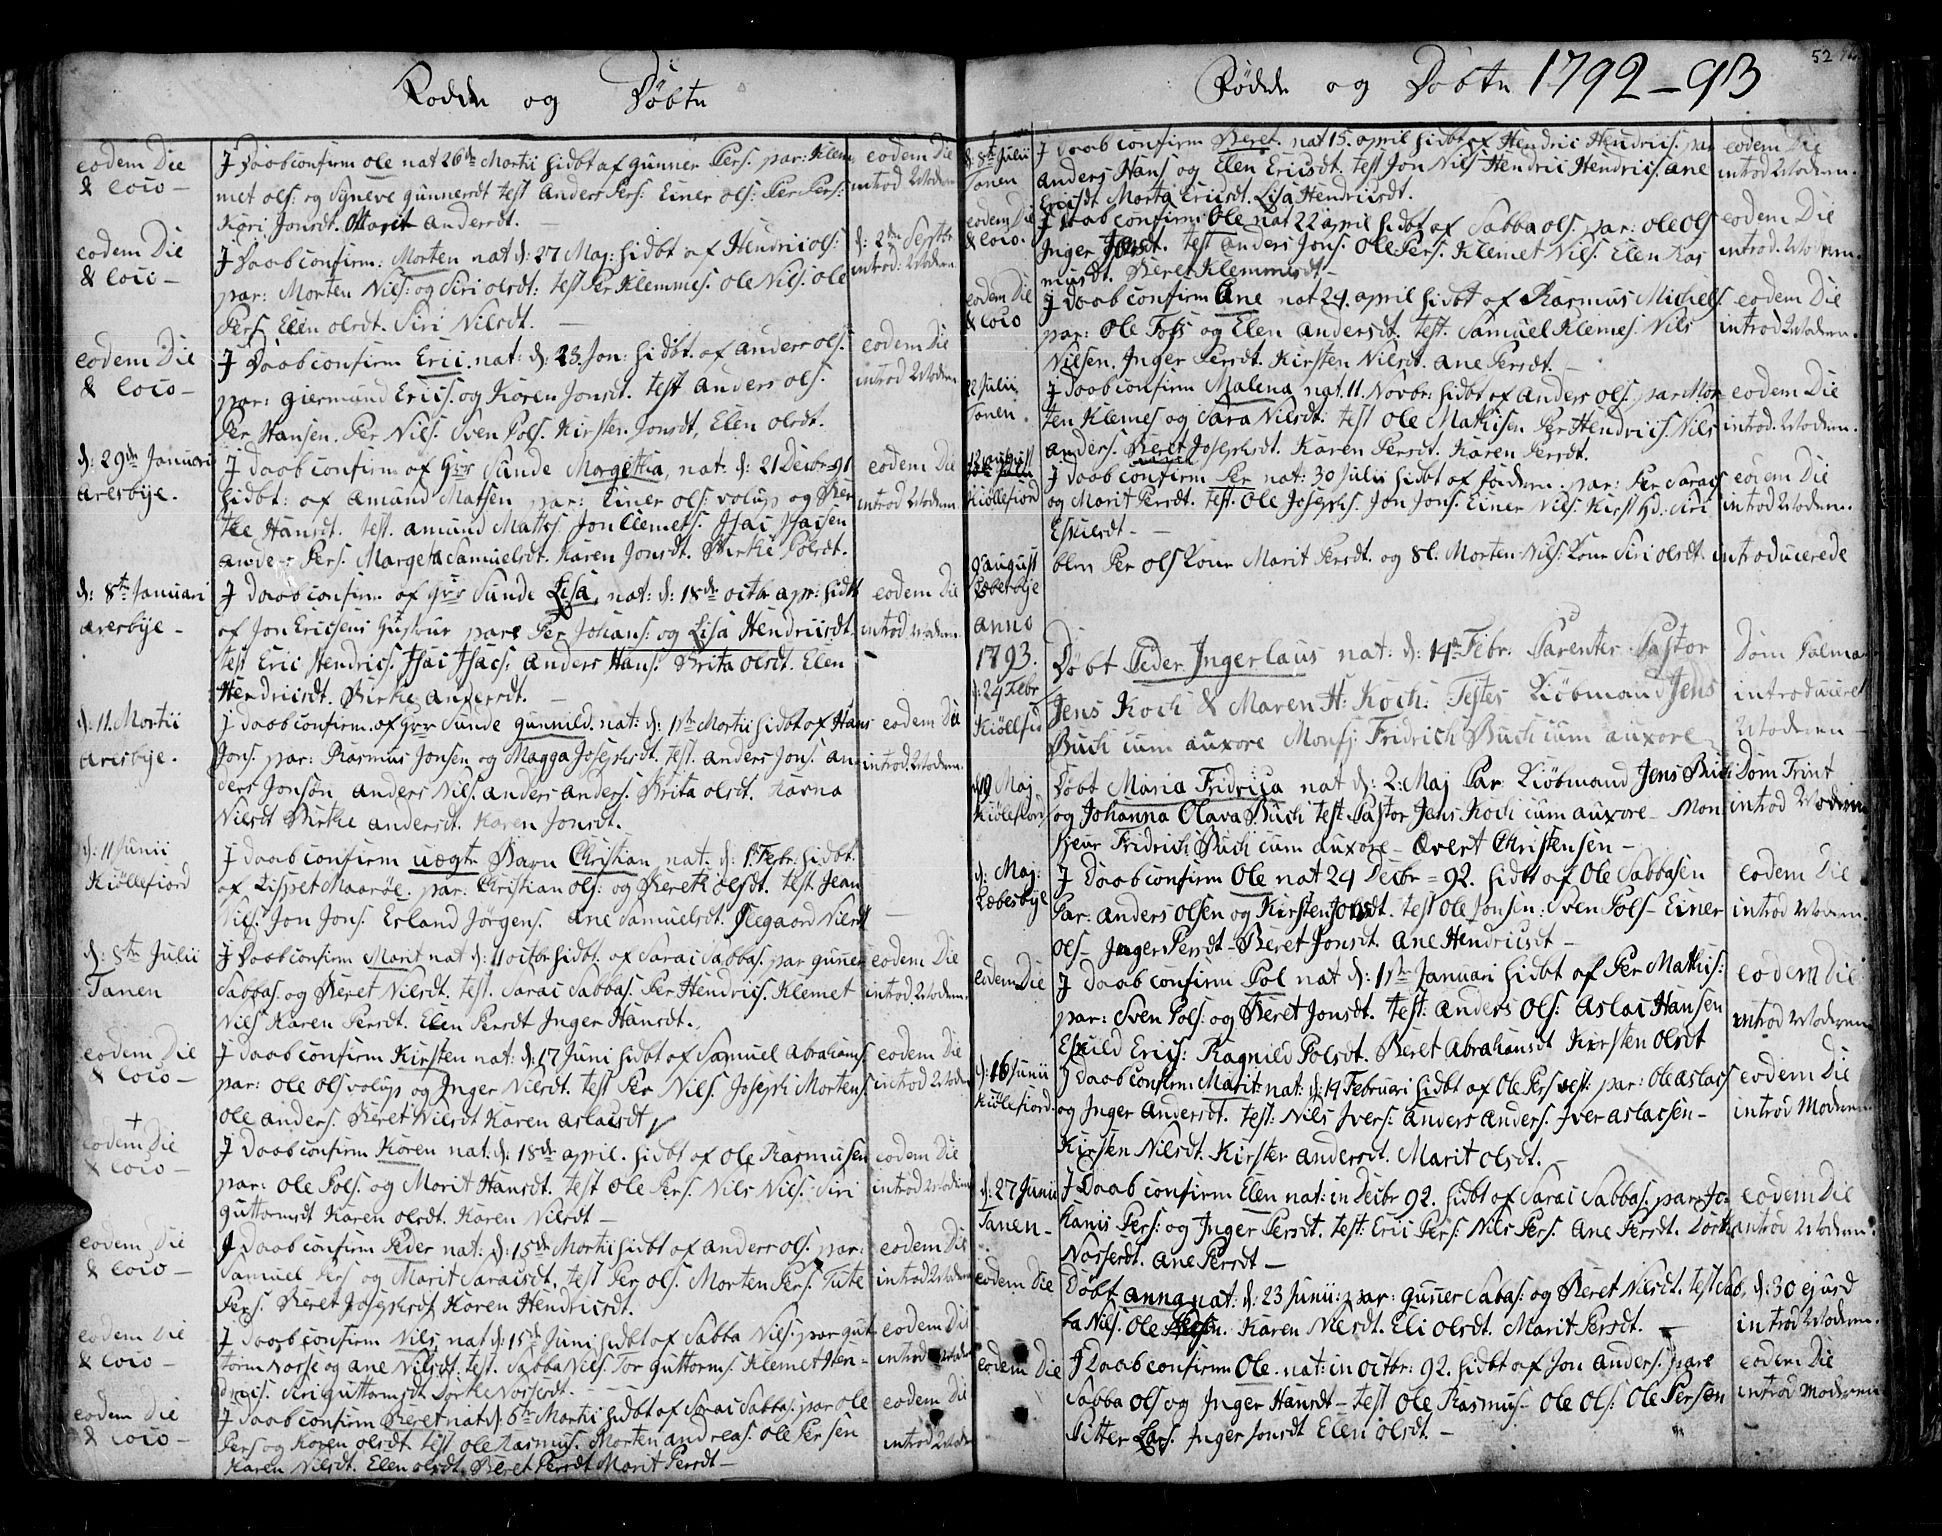 Fødde og Døbte
eodem Die & loco —
J Daabconfirm Ole nat 26de Martii hidbt af Gunner Pers. par: Klem
met ols: og Syneve Gunnersdt test Anders Pers: Einer ols: Per Pers:
Kari Jonsdt. Marit Andersdt. —
eodem Die introd. Moderen.
eodem Die & loco —
J Daabconfirm: Morten nat d: 27 Maj: hidbt af Hendric ols:
par: Morten Nils: og Siri olsdt: test Per Klemmes. Ole Nils. Ole
Pers. Elen olsdt. Siri Nilsdt. —
d: 2den Septbr introd: Moderen
eodem Die & loco —
J Daabconfirm Eric. nat: d: 23. Jan: hidbt. af Anders ols.
par: Giermund Erics. og Karen Jonsdt. test Anders ols.
Per Hansen. Per Nils. Sven Pols. Kirsten Jonsdt, Elen olsdt.
eodem Die introd: Moderen
d: 29de Januari Aresbye.
J daabconfirm af Hrr Sunde Margetha, nat. d: 21 Decbr 91
hidbt: af Amund Matsen par: Einer ols: volup og Ber
the Hansdt. test. Amund Mattss Jon Clemets. Isac Isacsen
Anders Pers. Margeta Samuelsdt. Karen Jonsdt. Birte Polsdt.
eodem Die introd. Moderen.
d: 8de Januari Aresbye —
J daabconfirm af Hrr Sunde Lisa, nat: d: 18de octbr apr: hidbt
af Jon Ericsens Hustrue pare Per Johans: og Lisa Hendricsdt.
test Eric Hendrics. Isac Isacs. Anders Hans. Brita olsdt. Elen
Hendricsdt. Birthe Andersdt. —
eodem Die introd Moderen —
d: 11. Martii Aresbye.
J daabconfirm. af Hrr Sunde Gunnild. nat: d: 1ste Martii hidbt af Hans
Jons. par: Rasmus Jonsen og Magga Josephsdt. test. Anders Jons. An
ders Jonson Anders Nils. Anders Anders. Brita olsdt. Karna
Nilsdt Birthe Andersdt. Karen Jonsdt.
eodem Die introd. Moderen.
d: 11 Junii Kiøllefiord
J daabconfirm uægte Barn Christian nat: d: 1 Febr: hidbt.
af Lispet Maarøe. par: Christian ols: og Bereth olsdt. test Jean
Nils. Jon Jons. Erland Jørgens. Ane Samuelsdt. Olegaard Nilsdt —
d: 8de Julii Tanen
J Daabconfirm Marit nat d: 11 octbr hidbt. af Sarai Sabbas. par Guner
Sabbas. og Beret Nilsdt. test. Sarai Sabbas. Per Hendrics. Klemet
Nils Karen Persdt. Elen Persdt Inger Hansdt.
eodem Die introd. Moderen.
eodem Die & loco —
J daabconfirm Kirsten nat: d: 17 Juni hidbt af Samuel Abrahams
par: Ole ols volup og Inger Nilsdt. test Per Nils. Joseph Mortens
Ole Anders. Beret Nilsdt Karen Aslacsdt
eodem Die introd Moderen
+
eodem Die & loco —
J Daabconfirm Karen nat. d: 18de april. hidbt af Ole Rasmusen
par. Ole Pols. og Marit Hansdt. test Ole Pers. Nils Nils. Siri
Guttormsdt Karen olsdt. Karen Nilsdt —
eodem Die introd Moderen
eodem Die & loco —
J Daabconfirm Peder nat: d: 15de Martii hidbt af Anders ols. par:
Samuel Pers og Marit Saraisdt. test Per ols. Morten Pers.
Pers. Beret Josephsdt Karen Hendricsdt.
eodem Die introd Moderen
eodem Die & loco —
J daabconfirm Nils nat d: 15de Juni hidbt af Sabba Nils. par Gut
torm Norse og Ane Nilsdt. test. Sabba Nils Tor Guttorms. Klemet Hen
drics. Siri Guttormsdt Dorte Norsersdt. —
eodem Die introd Moderen
eodem Die & loco —
J daabconfirm Beret nat d: 6te Martii hidbt af Sarai Sabbas. par Ole
Pers og Karen olsdt test Ole Rasmus. Morten Andreas. Ole Persen
Karen Nilsdt. Elen olsdt. Beret Persdt Marit Persdt —
eodem Die introd Moderen
Fødde og Døbte 1792-93
52
d. 8de Julii Tanen
J daabconfirm Beret. nat 15. april hidbt af Hendric Hendrics. par
Anders Hans og Elen Ericsdt. test Jon Nils Hendric Hendrics. Ane
Ericsdt Marta Ericsdt. Lisa Hendricsdt.
eodem Die introd Moderen.
eodem Die & loco.
J Daabconfirm Ole nat 22 april hidbt af Sabba ols. par: Ole Ols
Inger Jonsdt. test Anders Jons. Ole Pers. Klemet Nils. Elen Ras
musdt. Beret Klemmesdt —
eodem Die introd. Moderen.
eodem Die & loco
J daabconfirm Ane nat 24. april hidbt af Rasmus Michels.
par: Ole Tofs og Elen Andersdt. test. Samuel Klemes. Nils
Nilsen. Inger Persdt. Kirsten Nilsdt. Ane Persdt. —
eodem Die introd Moderen.
22 Julii Tanen.
J daabconfirm Malena nat. 11 Novbr: hidbt af Anders ols. par Mor
ten Klemes og Sara Nilsdt. test Ole Mathisen Per Hendrics. Nils
Anders. Beret Josephsdt. Karen Persdt. Karen Persdt.
eodem Die introd. Moderen.
12 august Kiøllefiord
J daabconfirm Per nat: 30 Julii hidbt af Jordem. par: Per Sarais
og Marit Persdt. test. Ole Josephs. Jon Jons: Einer Nils: Kirst Siri
Eskilsdt —
eodem Die introd Moderen.
9 august Lebesbye
blev Per ols Kone Marit Persdt. og Sl. Morten Nils. Kone Siri olsdt. introducerede
anno 1793.
d: 24 Febr Kiøllefiord
Døbt Peder Ingerlaus nat: d: 14de Febr. Parentes. Pastor
Jens Koch & Maren H: Koch. Testes Kiøbmand Jens
Buch cum auxore Monsj. Fridrich Buch cum auxore
Dom Palmar introduceret Moderen —
d 19 Maj Kiøllefiord
Døbt Maria Fridrica nat d: 2. Maj Par Kiøbmand Jens Buch
og Johanna Olava Buch test. Pastor Jens Koch cum auxore — Mon
sieur Fridrich Buch cum auxore — Evert Christensen —
Dom Trint introd Moderen
d: Maj: Lebesbye
J Daabconfirm Ole nat 24 Decbr = 92. hidbt af Ole Sabbasen
Par: Anders Olsen og Kirsten Jonsdt. test Ole Jonsen. Sven Pols — Einer
Ols — Inger Persdt — Beret Jonsdt. Ane Hendricsdt —
eodem Die introd Moderen.
eodem Die
J daabconfirm Pol nat d: 1ste Januari hidbt af Per Mathis:
par: Sven Pols: og Beret Jonsdt. test: Anders Ols: Aslac Hansen
Eskild Erics: Ragnild Polsdt. Beret Abrahamsdt Kirsten Olsdt
eodem Die introd Moderen
d: 16 Junii Kiøllefiord.
J daabconfirm Marit: nat: d: 14 Februari hidbt af Ole Pers test: par: Ole Aslacs
og Inger Andersdt. test: Nils Ivers: Anders Anders. Iver Aslacsen —
Kirsten Nilsdt. Kirsten Andersdt. Marit olsdt. —
eodem Die introd Moderen
d: 27 Junii Tanen —
J Daabconfirm Elen nat: in Decbr 92. hidbt af Sarai Sabbas. par: Jo
hanis Pers: og Inger Persdt. test: Eric Pers: Nils Pers. Ane Persdt. Dorte
Norsersdt. Ane Persdt —
eodem Die introd Moderen.
eodem Die
Døbt Anna nat: d: 23 Junii: par: Guner Sabas: og Beret Nilsdt. test Sab
ba Nils. Ole. Karen Nilsdt. Eli Olsdt. Marit Persdt. —
d: 30 ejusd introd Moderen.
eodem Die
J Daabconfirm Ole. nat: in octbr: 92. hidbt af Jon Anders. pare
Sabba Ols og Inger Hansdt — test Ole Rasmus — Ole Ols: Ole Persen
Pitter Lars. Inger Jonsdt Elen olsdt. —
eodem Die introd Moderen